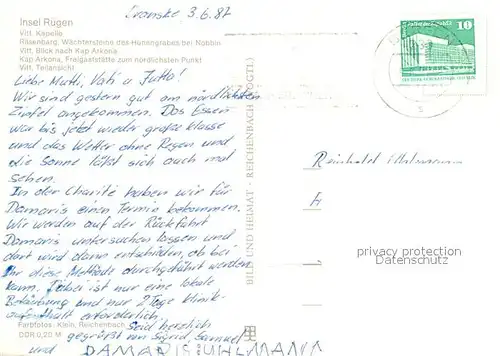 Dranske 3.6.87
Insel Rügen
Vitt. Kapelle
Riesenberg, Wächtersteine des Hünengrabes bei Nobbin
Vitt. Blick nach Kap Arkona
Kap Arkona, Freigaststätte zum nördlichsten Punkt
Vitt. Teilansicht
Liebe Mutti, Vati u Jutta!
Wir sind gestern gut am nördlichsten
Zipfel angekommen. Das Essen
war bis jetzt wieder große Klasse
und das Wetter ohne Regen und
die Sonne läßt sich auch mal
sehen.
In der Charité haben wir für
Damaris einen Termin bekommen.
Wir werden auf der Rückfahrt
Damaris untersuchen lassen und
dort wird dann entschieden, ob bei
ihr diese Methode durchgeführt werden
kann. Dabei ist nur eine lokale
Betäubung und nur 2 Tage Klinik-
aufenthalt erforderlich.
Seid herzlich
gegrüßt von Sigrid, Samuel
und DAMARIS UHLMANN
Farbfotos: Klein, Reichenbach
DDR 0,20 M
BILD UND HEIMAT · REICHENBACH (VOGTL)
10
Reinhold
privacy protection
Datenschutz